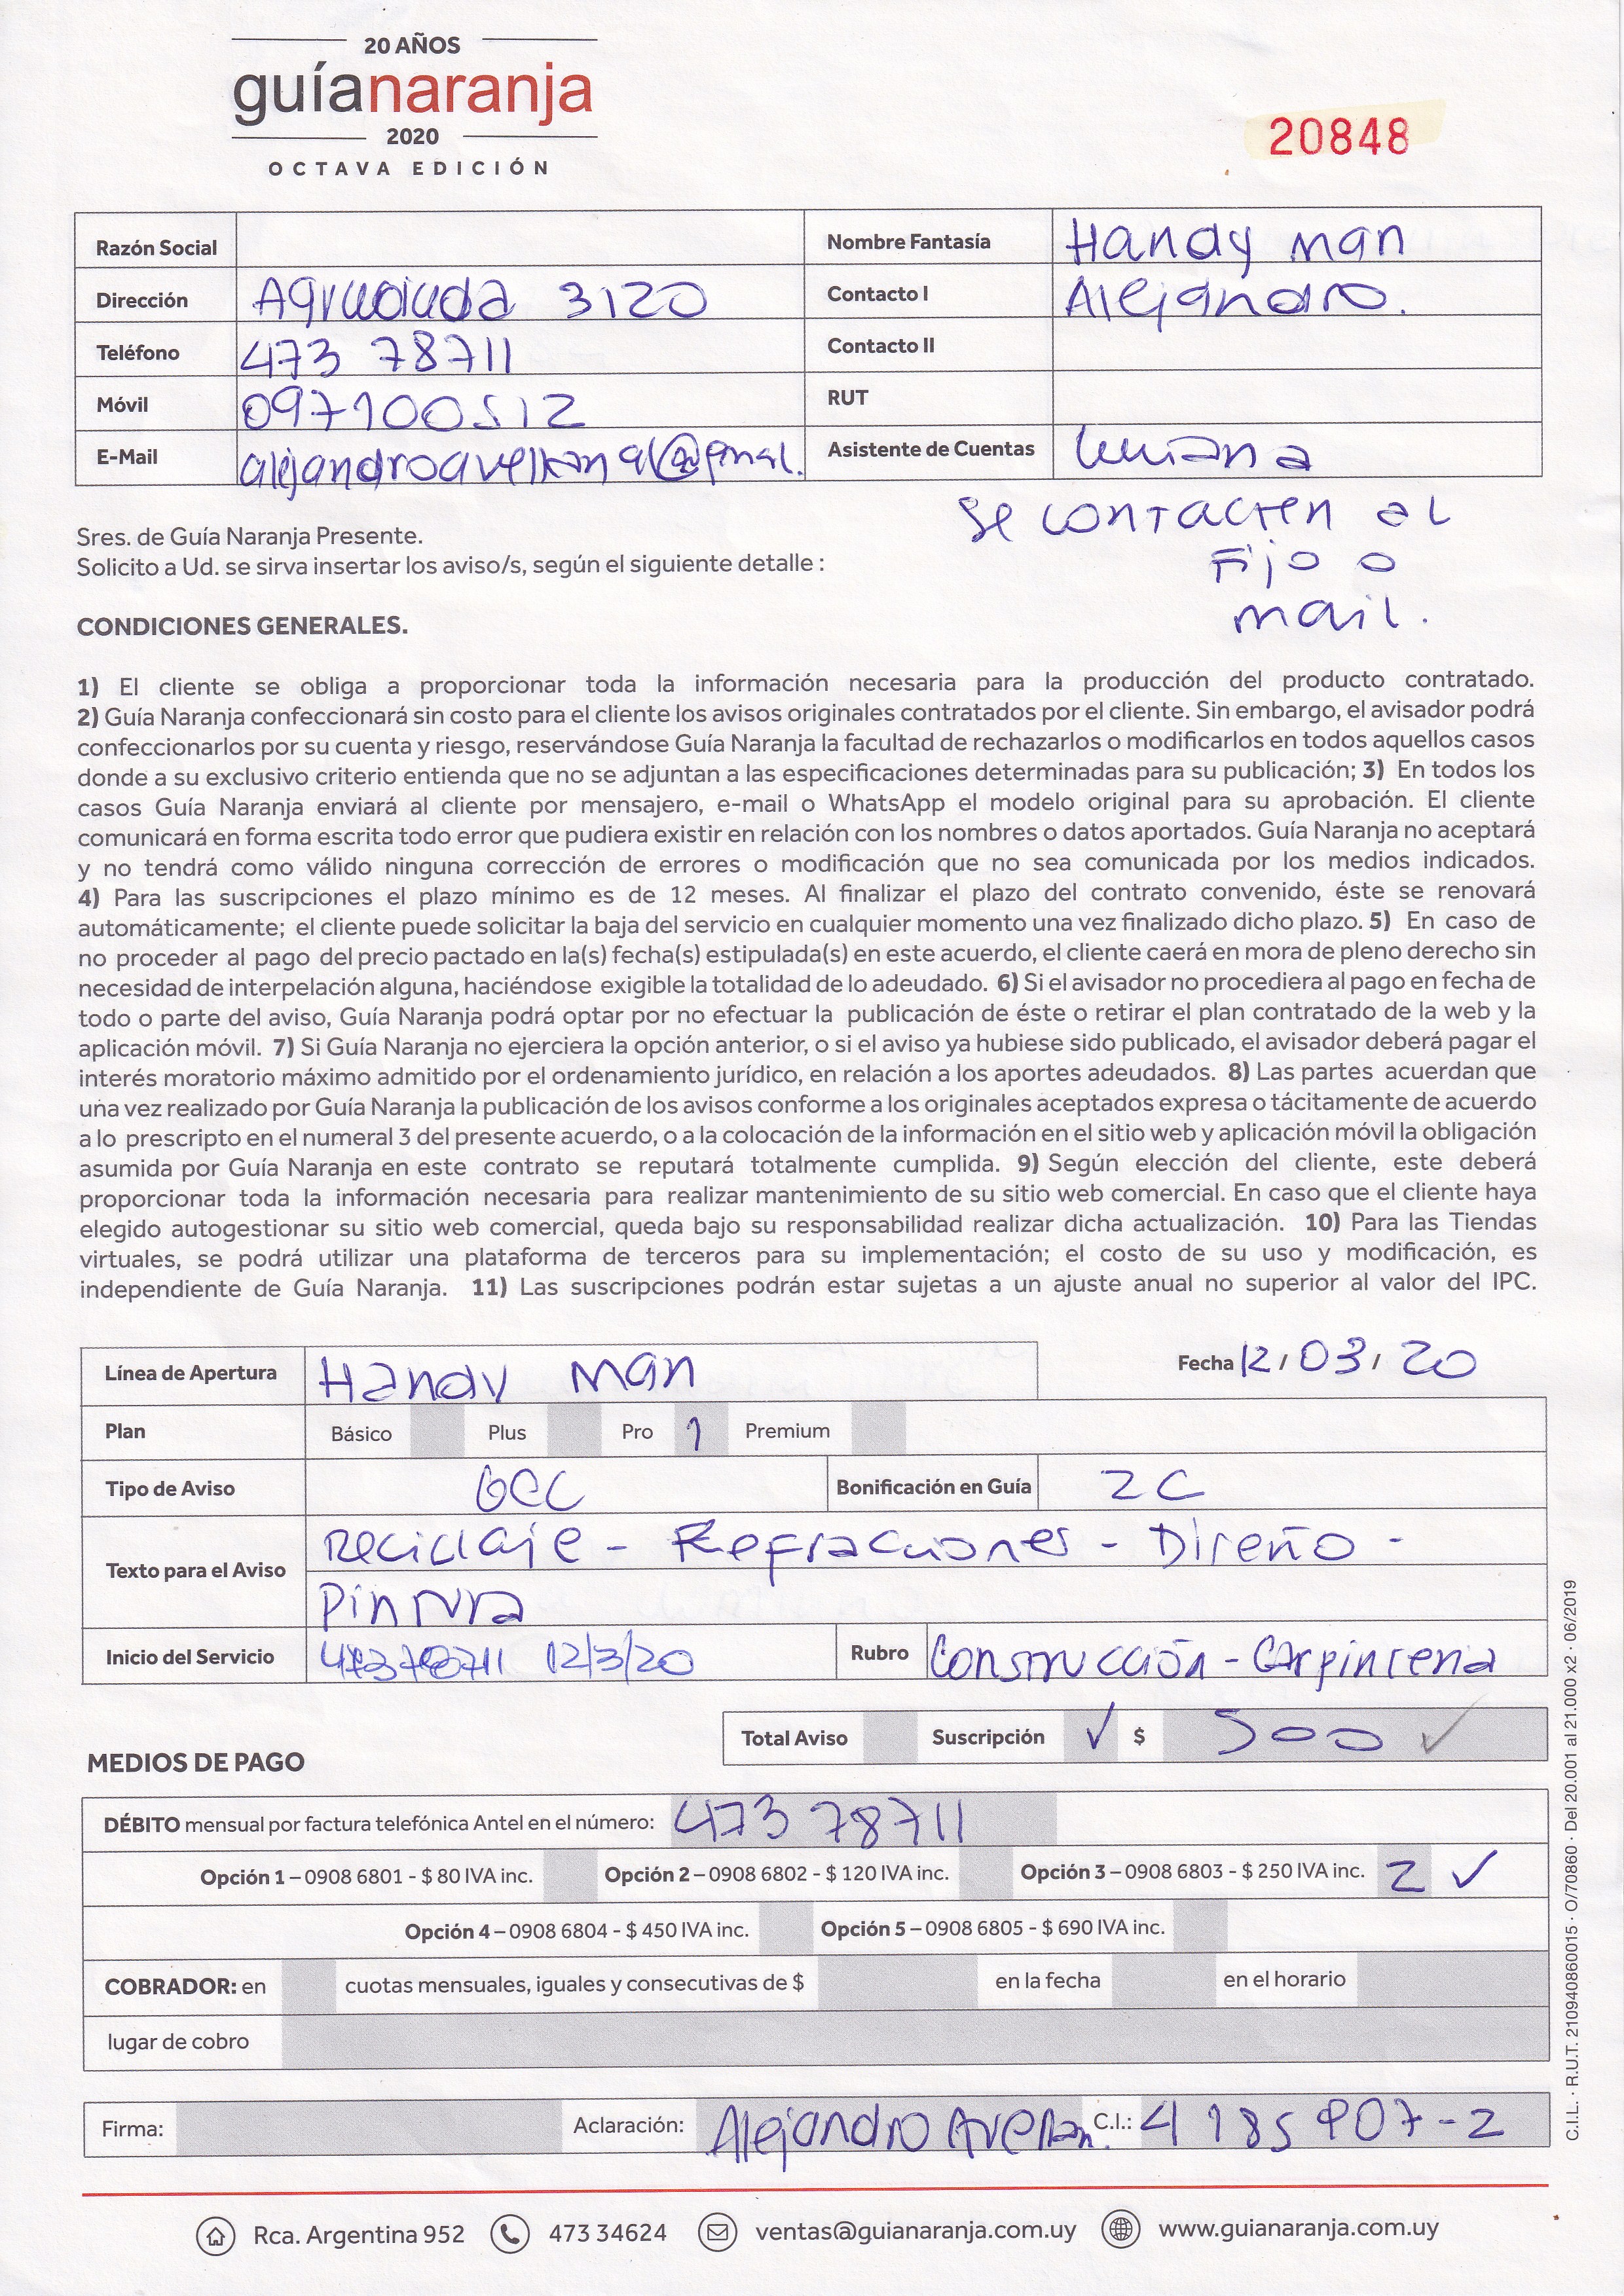 20 AÑOS
guíanaranja
2020
OCTAVA EDICIÓN
20848
Razón Social
Nombre Fantasía Handy man
Dirección 3120
Contacto I Alejandro.
Teléfono 473 78711
Contacto II
Móvil 097100512
RUT
E-Mail
Asistente de Cuentas
Se contacten al
Fijo o
mail.
Sres. de Guía Naranja Presente.
Solicito a Ud. se sirva insertar los aviso/s, según el siguiente detalle :
CONDICIONES GENERALES.
1) El cliente se obliga a proporcionar toda la información necesaria para la producción del producto contratado.
2) Guía Naranja confeccionará sin costo para el cliente los avisos originales contratados por el cliente. Sin embargo, el avisador podrá
confeccionarlos por su cuenta y riesgo, reservándose Guía Naranja la facultad de rechazarlos o modificarlos en todos aquellos casos
donde a su exclusivo criterio entienda que no se adjuntan a las especificaciones determinadas para su publicación; 3) En todos los
casos Guía Naranja enviará al cliente por mensajero, e-mail o WhatsApp el modelo original para su aprobación. El cliente
comunicará en forma escrita todo error que pudiera existir en relación con los nombres o datos aportados. Guía Naranja no aceptará
y no tendrá como válido ninguna corrección de errores o modificación que no sea comunicada por los medios indicados.
4) Para las suscripciones el plazo mínimo es de 12 meses. Al finalizar el plazo del contrato convenido, éste se renovará
automáticamente; el cliente puede solicitar la baja del servicio en cualquier momento una vez finalizado dicho plazo. 5) En caso de
no proceder al pago del precio pactado en la(s) fecha(s) estipulada(s) en este acuerdo, el cliente caerá en mora de pleno derecho sin
necesidad de interpelación alguna, haciéndose exigible la totalidad de lo adeudado. 6) Si el avisador no procediera al pago en fecha de
todo o parte del aviso, Guía Naranja podrá optar por no efectuar la publicación de éste o retirar el plan contratado de la web y la
aplicación móvil. 7) Si Guía Naranja no ejerciera la opción anterior, o si el aviso ya hubiese sido publicado, el avisador deberá pagar el
interés moratorio máximo admitido por el ordenamiento jurídico, en relación a los aportes adeudados. 8) Las partes acuerdan que
una vez realizado por Guía Naranja la publicación de los avisos conforme a los originales aceptados expresa o tácitamente de acuerdo
a lo prescripto en el numeral 3 del presente acuerdo, o a la colocación de la información en el sitio web y aplicación móvil la obligación
asumida por Guía Naranja en este contrato se reputará totalmente cumplida. 9) Según elección del cliente, este deberá
proporcionar toda la información necesaria para realizar mantenimiento de su sitio web comercial. En caso que el cliente haya
elegido autogestionar su sitio web comercial, queda bajo su responsabilidad realizar dicha actualización. 10) Para las Tiendas
virtuales, se podrá utilizar una plataforma de terceros para su implementación; el costo de su uso y modificación, es
independiente de Guía Naranja. 11) Las suscripciones podrán estar sujetas a un ajuste anual no superior al valor del IPC.
Línea de Apertura Handy man
Fecha 12 / 03 / 20
Plan Básico Plus Pro 1 Premium
Tipo de Aviso Bonificación en Guía 2C
Texto para el Aviso Reciclaje - Refracciones - Diseño -
Pintura
Inicio del Servicio 47378711 12/3/20 Rubro Construcción - Carpintería
Total Aviso Suscripción ✓ $ 500 ✓
MEDIOS DE PAGO
DÉBITO mensual por factura telefónica Antel en el número: 473 78711
Opción 1 – 0908 6801 - $ 80 IVA inc. Opción 2 – 0908 6802 - $ 120 IVA inc. Opción 3 – 0908 6803 - $ 250 IVA inc. 2 ✓
Opción 4 – 0908 6804 - $ 450 IVA inc. Opción 5 – 0908 6805 - $ 690 IVA inc.
COBRADOR: en cuotas mensuales, iguales y consecutivas de $ en la fecha en el horario
lugar de cobro
Firma: Aclaración: Alejandro C.I.: 4 185 907-2
Rca. Argentina 952 473 34624 ventas@guianaranja.com.uy www.guianaranja.com.uy
C.I.L. · R.U.T. 210940860015 · O/70860 · Del 20.001 al 21.000 x2 · 06/2019